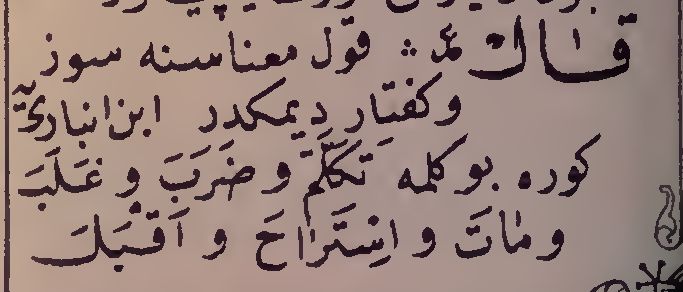 قال ع م : قول معناسنه سوز
وكفتار ديمكدر ابن انباري
كوره بو كلمه تَكَلَّمَ و ضَرَبَ و غَلَبَ
و مٰاتَ و اسِتَرٰاحَ و اَقْبَلَ